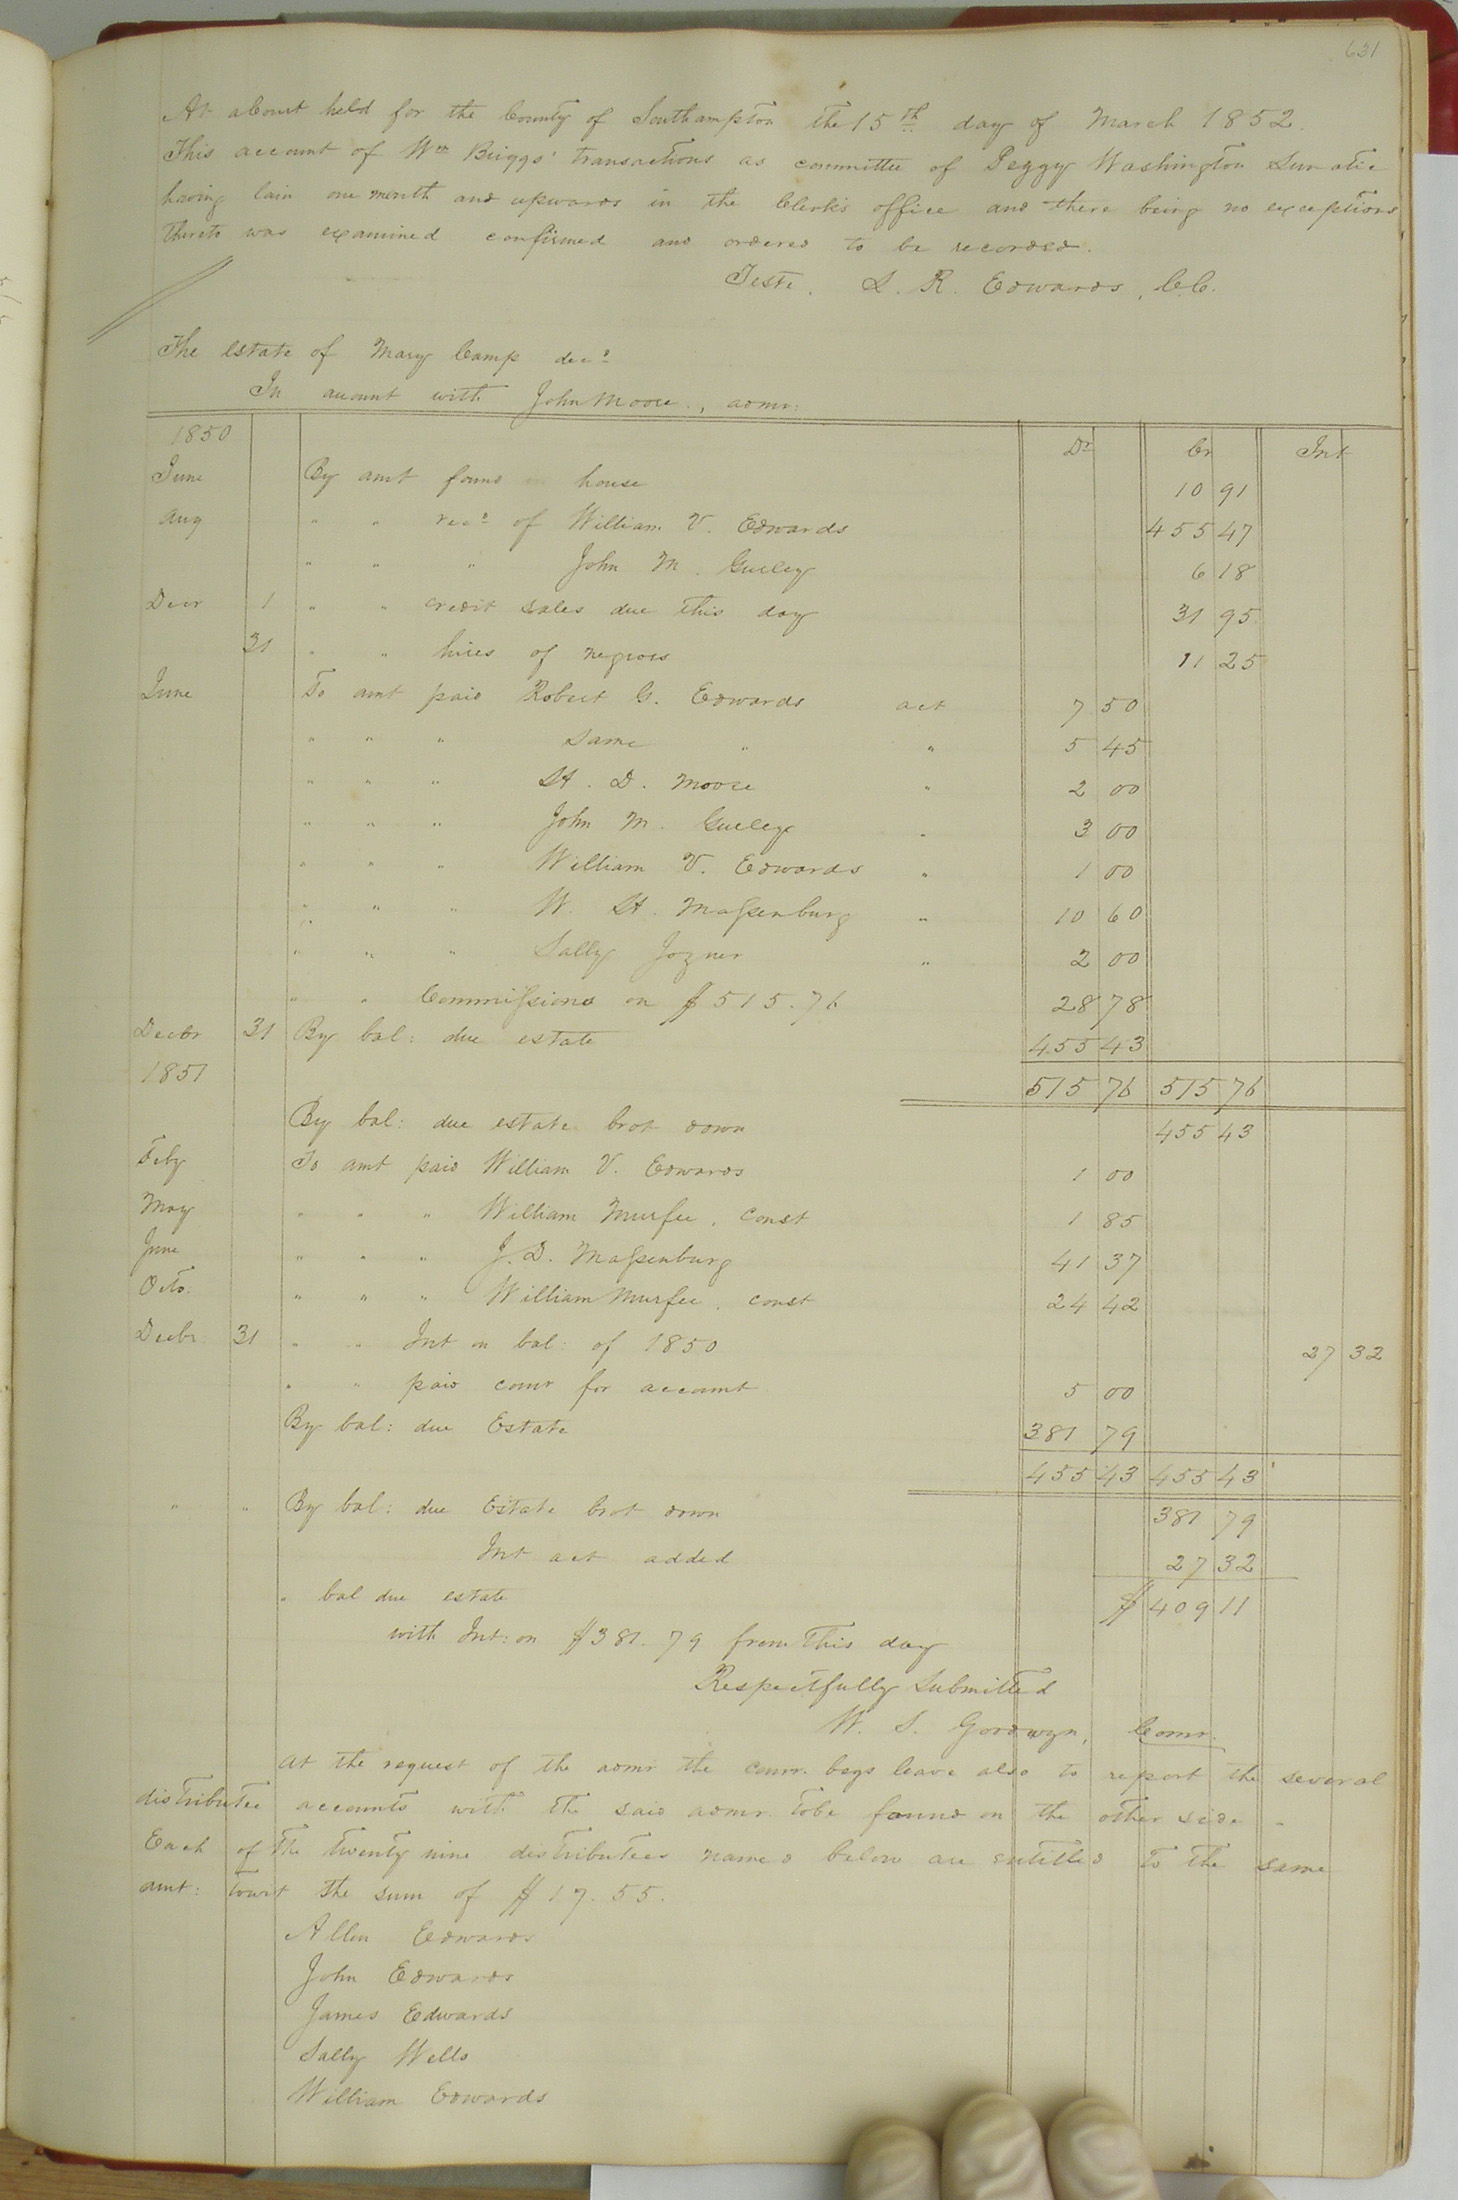 631
At a Court held for the County of Southampton the 15th day of March 1852.
This account of Wm Briggs' transactions as committee of Peggy Washington Lunatic
having lain one month and upwards in the Clerk's office and there being no exceptions
thereto was examined confirmed and ordered to be recorded.
Teste. L. R. Edwards, C.C.
The Estate of Mary Camp decd
In account with John Moore, admr:
1850 Dr Cr Int
June By amt found in house 10 91
Aug " " recd of William V. Edwards 455 47
" " " John M. Gurley 6 18
Decr 1 " " credit sales due this day 31 95
31 " " hires of negroes 11 25
June To amt paid Robert G. Edwards act 7 50
" " " Same " " 5 45
" " " H. D. Moore " 2 00
" " " John M. Gurley " 3 00
" " " William V. Edwards " 1 00
" " " W. H. Massenburg " 10 60
" " " Sally Joyner " 2 00
" " Commissions on $515.76 28 78
Decbr 31 By bal: due estate 455 43
1851 515 76 515 76
By bal: due estate brot down 455 43
Feby To amt paid William V. Edwards 1 00
May " " " William Murfee, const 1 85
June " " " J. D. Massenburg 41 37
Octo: " " " William Murfee, const 24 42
Decbr. 31 " " Int on bal: of 1850 27 32
" " paid comr for account 5 00
By bal: due Estate 381 79
455 43 455 43
" " By bal: due Estate brot down 381 79
Int act added 27 32
" bal due estate $ 409 11
with Int: on $381.79 from this day
Respectfully Submitted
W. S. Goodwyn, Comr.
At the request of the admr the comr. begs leave also to report the several
distributee accounts with the said admr. tobe found on the other side -
Each of the twenty nine distributees named below are entitled to the same
amt: towit the sum of $17.55.
Allen Edwards
John Edwards
James Edwards
Sally Wells
William Edwards